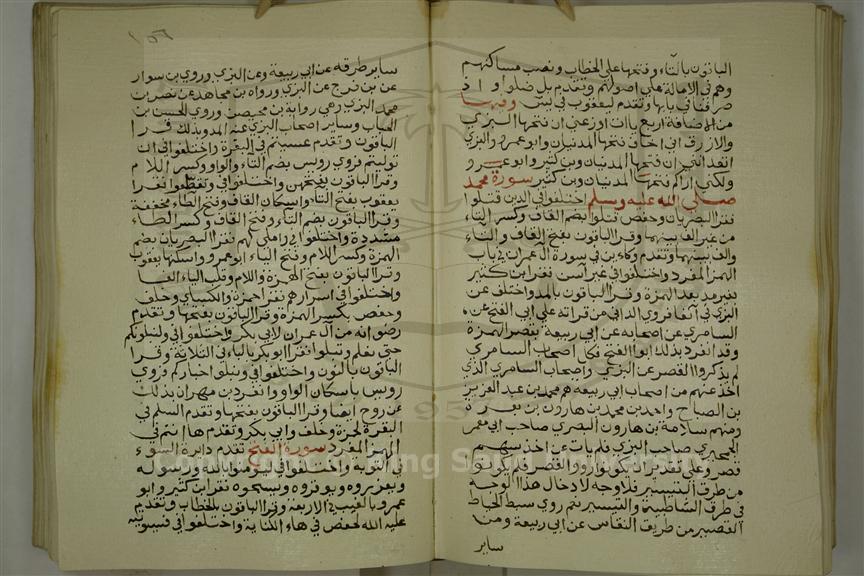 الباقون بالتاء وفتحها على الخطاب ونصب مساكنهم
وهم في الامالة على اصولهم وتقدم بل ضلوا واذ
صرفنا في بابها وتقدم ليعقوب في يس وفيها
من الاضافة اربع يا ات اوزعني ان فتحها البزي
والازرق اني اخاف فتحها المدنيان وابو عمرو والبزي
اتعدانني ان فتحها المدنيان وبن كثير وابو عمرو
ولكني اراكم فتحها المدنيان وبن كثير سورة محمد
صلى الله عليه وسلم اختلفوا في الذين قتلوا
فقرا البصريان وحفص قتلوا بضم القاف وكسر التاء
من غير الف بينهما وقرا الباقون بفتح القاف والتاء
والف بينهما وتقدم وكاين في سورة ال عمران في باب
الهمز المفرد واختلفوا في غير آسن فقرا بن كثير
بغير مد بعد الهمزة وقرا الباقون بالمد واختلف عن
البزي في آنفا فروى الداني من قراته على ابي الفتح عن
السامري عن اصحابه عن ابي ربيعة بقصر الهمزة
وقد انفرد بذلك ابو الفتح فكل اصحاب السامري
لم يذكروا القصر عن البزي واصحاب السامري الذي
اخذ عنهم من اصحاب ابي ربيعة هم محمد بن عبد العزيز
بن الصباح واحمد بن محمد بن هارون بن بقرة
ومنهم سلامة بن هارون البصري صاحب ابي معمر
الجمحي صاحب البزي فلم يات عن احد منهم
قصر وعلى تقدير ان يكونوا رووا القصر فلم يكونوا
من طرق التيسير فلا وجه لادخال هذا الوجه
في طرق الشاطبية والتيسير نعم روى سبط الخياط
القصر من طريق النقاش عن ابي ربيعة ومن
ساير
ساير طرقه عن ابي ربيعة وعن البزي وروى بن سوار
عن بن فرح عن البزي ورواه بن مجاهد عن نصر بن
محمد البزي وهي رواية بن محيصن وروى الحسن بن
الحباب وساير اصحاب البزي عنه المد وبذلك قرا
الباقون وتقدم عسيتم في البقرة واختلفوا في ان
توليتم فروى رويس بضم التاء والواو وكسر اللام
وقرا الباقون بفتحهن واختلفوا في وتقطعوا فقرا
يعقوب بفتح التاء واسكان القاف وفتح الطاء مخففة
وقرا الباقون بضم التاء وفتح القاف وكسر الطاء
مشددة واختلفوا في واملي لهم فقرا البصريان بضم
الهمزة وكسر اللام وفتح الياء ابو عمرو واسكنها يعقوب
وقرا الباقون بفتح الهمزة واللام وقلب الياء الفا
واختلفوا في اسرارهم فقرا حمزة والكسائي وخلف
وحفص بكسر الهمزة وقرا الباقون بفتحها وتقدم
رضوانه من آل عمران لابي بكر واختلفوا في ولنبلونكم
حتى نعلم ونبلوا فقرا ابو بكر بالياء في الثلاثة وقرا
الباقون بالنون واختلفوا في ونبلو اخباركم فروى
رويس باسكان الواو وانفرد بن مهران بذلك
عن روح ايضا وقرا الباقون بفتحها وتقدم السلم في
البقرة لحمزة وخلف وابي بكر وتقدم ها انتم في
الهمز المفرد سورة الفتح تقدم دايرة السوء
في التوبة واختلفوا في ليومنوا بالله ورسوله
ويعزروه ويوقروه ويسبحوه فقرا بن كثير وابو
عمرو بالغيب في الاربعة وقرا الباقون بالخطاب وتقدم
عليه الله لحفص في هاء الكناية واختلفوا في فسيوتيه